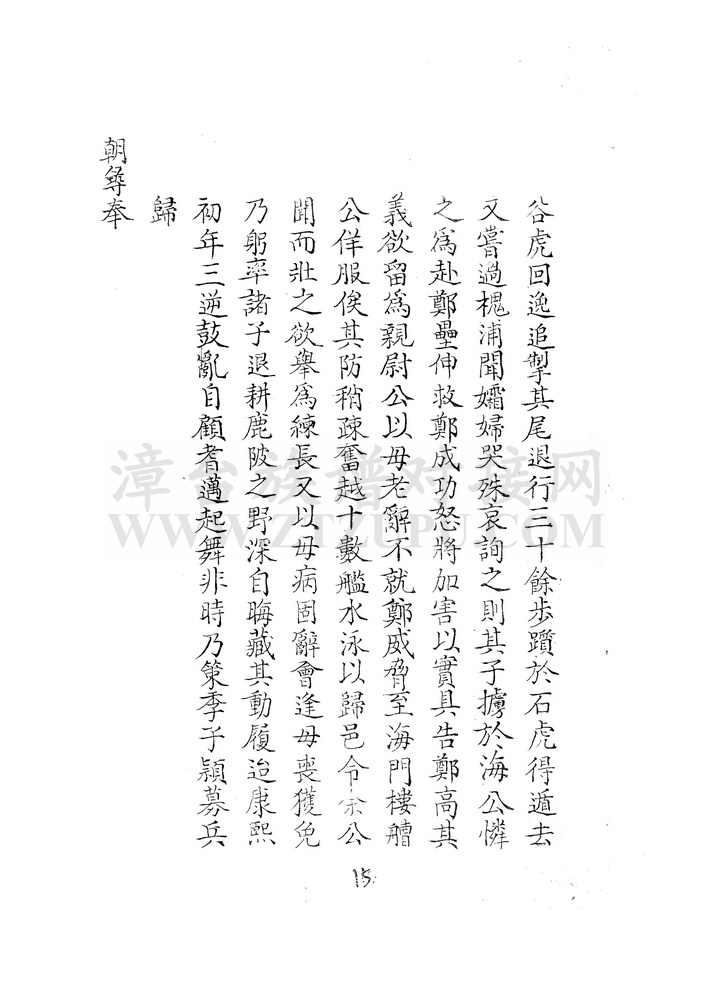 谷虎回逸追掣其尾退行三十餘步躓於石虎得遁去
又嘗過槐浦聞孀婦哭殊哀詢之則其子擄於海公憐
之爲赴鄭壘伸救鄭成功怒將加害以實具告鄭高其
義欲留爲親尉公以母老辭不就鄭威脅至海門樓艚
公佯服俟其防稍疎奮越十數艦水泳以歸邑令余公
聞而壯之欲舉爲練長又以母病固辭會逢母喪獲免
乃躬率諸子退耕鹿陂之野深自晦藏其動履迨康熙
初年三逆鼓亂自顧耆邁起舞非時乃策季子頴募兵
歸
朝尋奉
15
漳台族譜对接网
WWW.ZTZUPU.COM